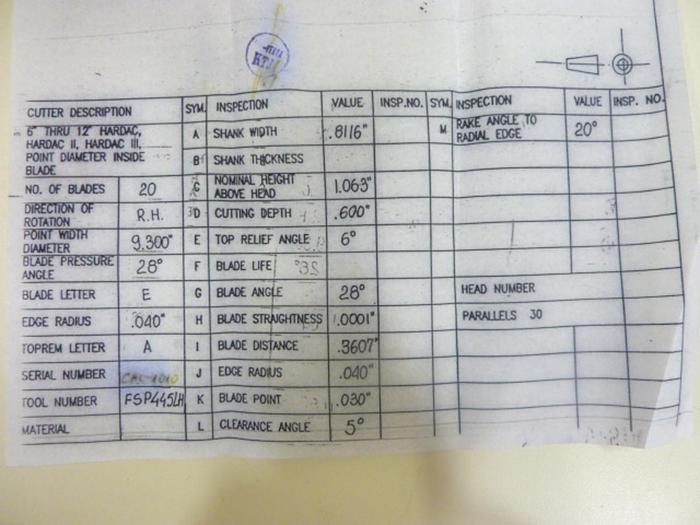 CUTTER DESCRIPTION SYM. INSPECTION VALUE INSP.NO. SYM. INSPECTION VALUE INSP. NO.
6" THRU 12" HARDAC,
HARDAC II, HARDAC III,
POINT DIAMETER INSIDE
BLADE
A SHANK WIDTH .8116" M RAKE ANGLE TO
RADIAL EDGE 20°
B SHANK THICKNESS
NO. OF BLADES 20 C NOMINAL HEIGHT
ABOVE HEAD 1.063"
DIRECTION OF
ROTATION R.H. D CUTTING DEPTH .600"
POINT WIDTH
DIAMETER 9.300" E TOP RELIEF ANGLE 6°
BLADE PRESSURE
ANGLE 28° F BLADE LIFE
BLADE LETTER E G BLADE ANGLE 28° HEAD NUMBER
EDGE RADIUS .040" H BLADE STRAIGHTNESS .0001" PARALLELS 30
TOPREM LETTER A I BLADE DISTANCE .3607"
SERIAL NUMBER J EDGE RADIUS .040"
TOOL NUMBER FSP445LH K BLADE POINT .030"
MATERIAL L CLEARANCE ANGLE 5°